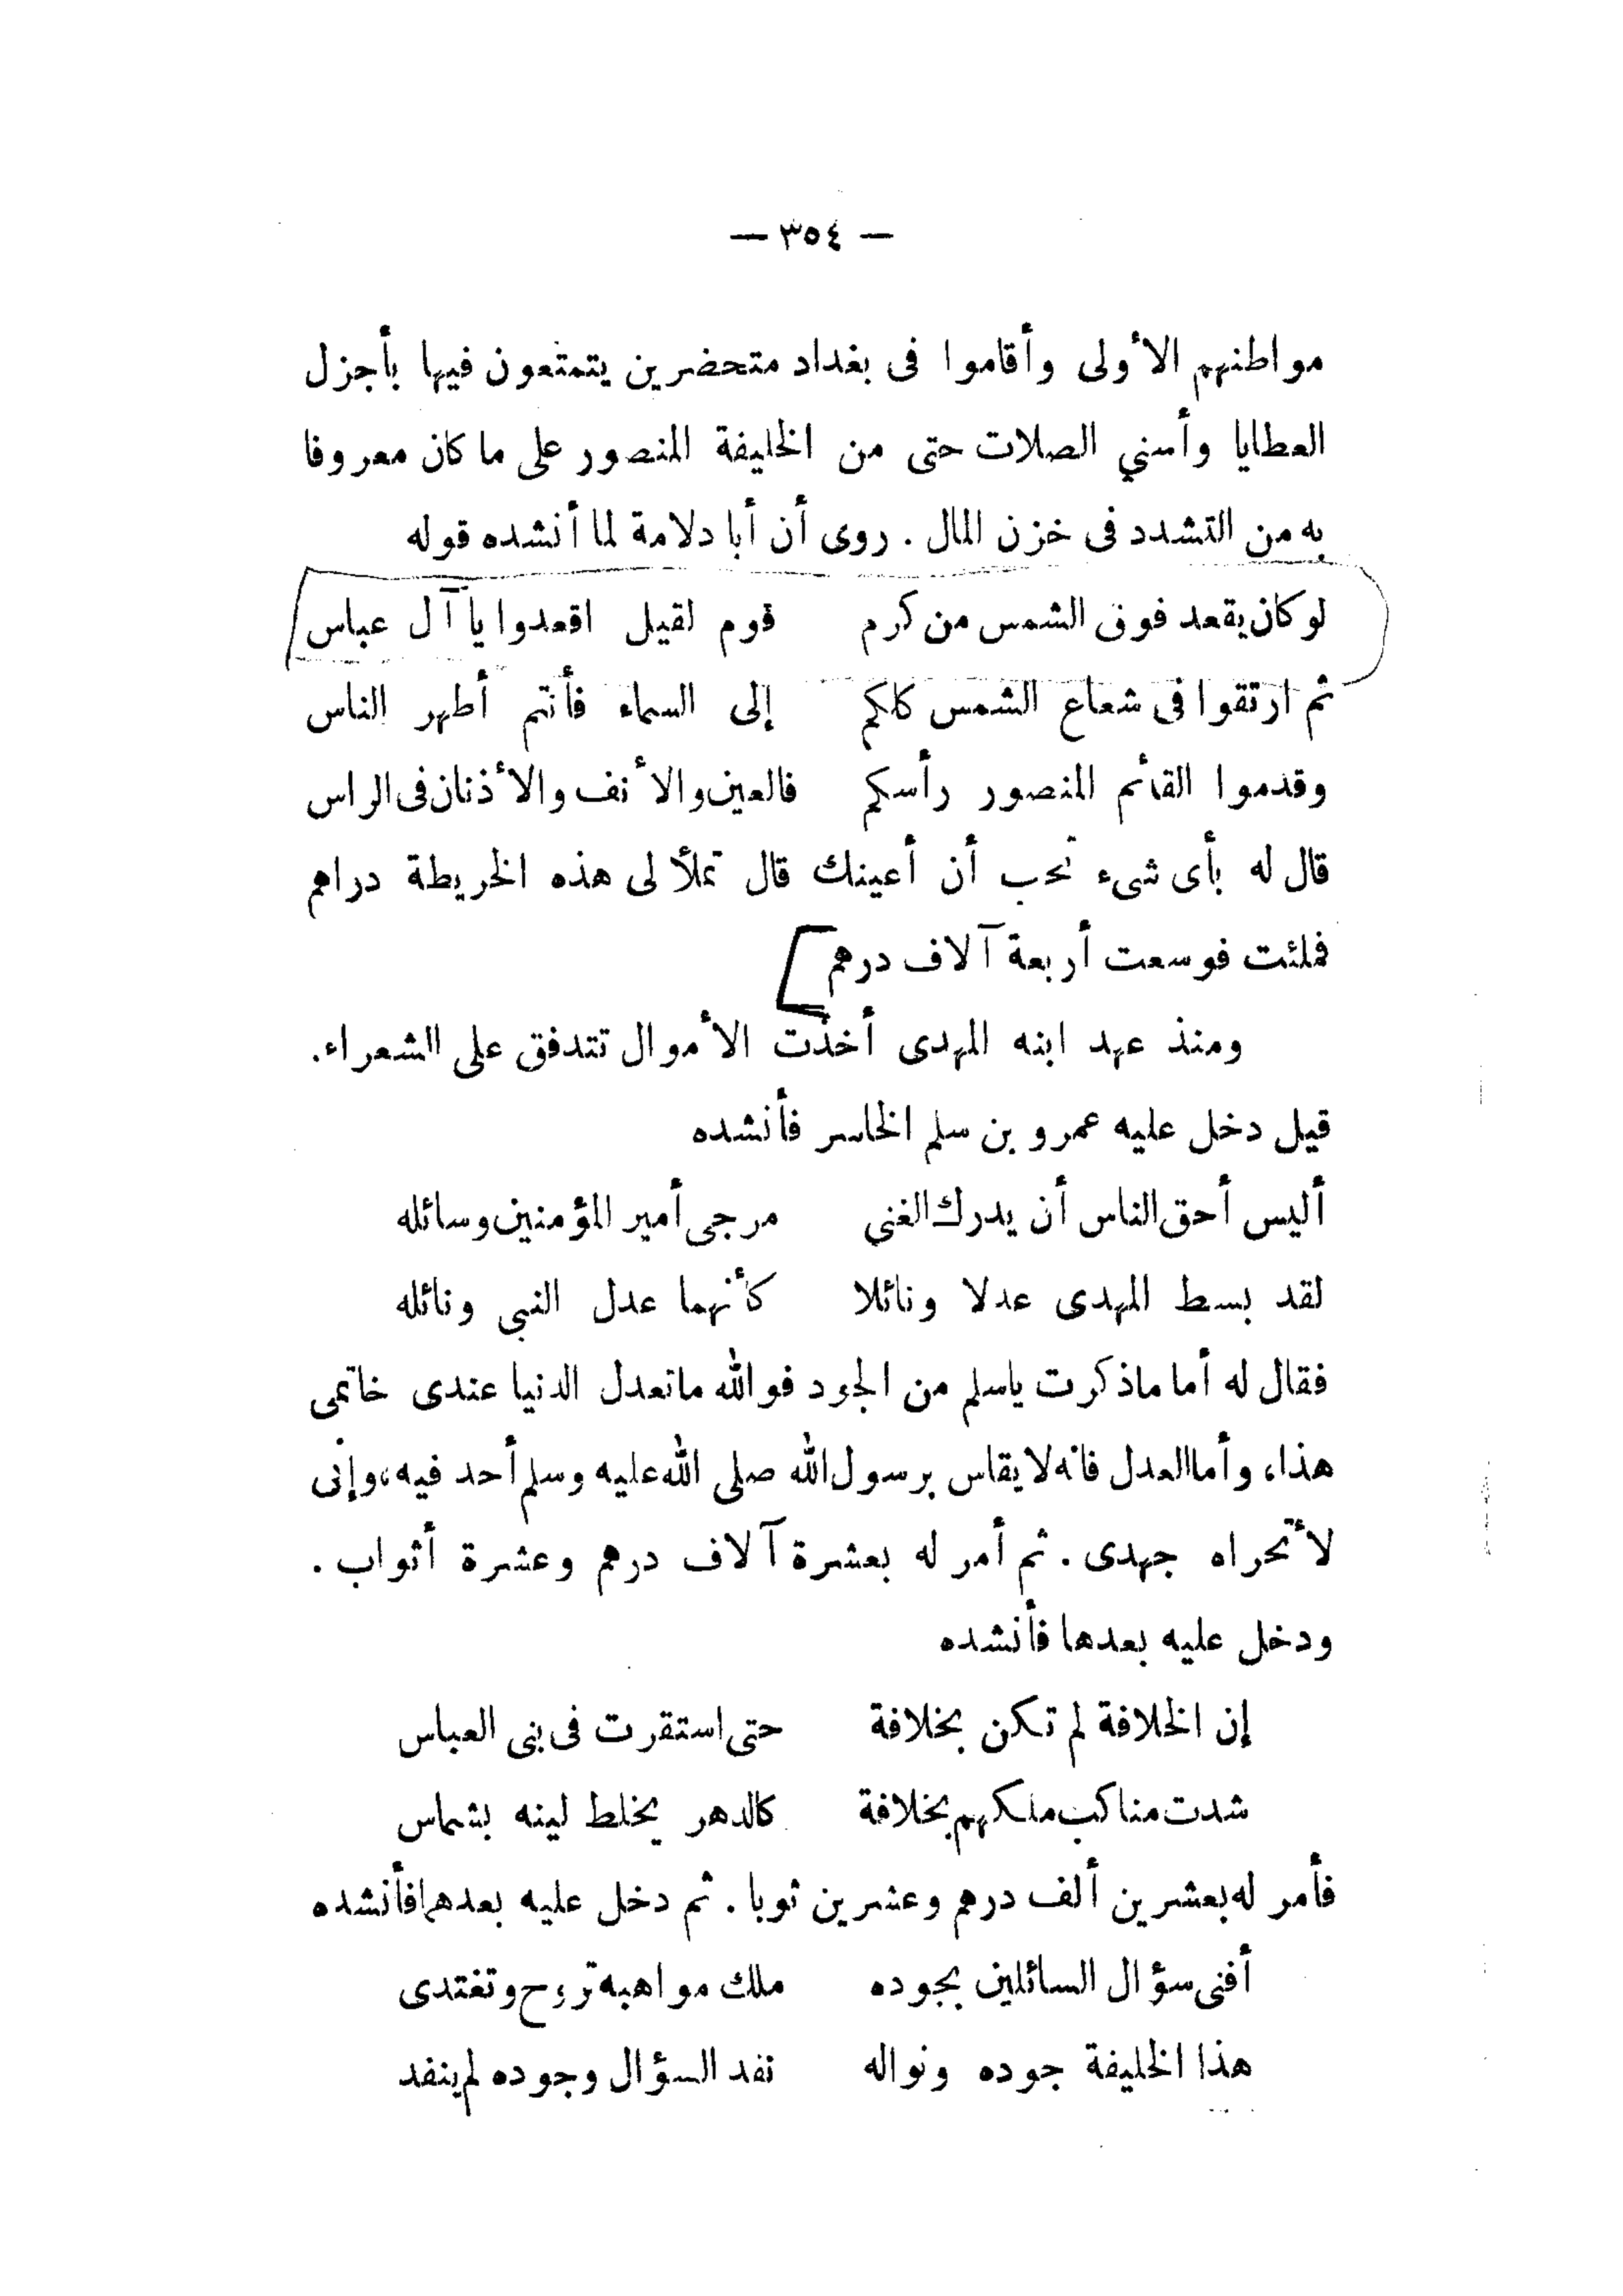 — ٣٥٤ —
مواطنهم الأولى وأقاموا فى بغداد متحضرين يتمتعون فيها بأجزل
العطايا وأسني الصلات حتى من الخليفة المنصور على ما كان معروفا
به من التشدد فى خزن المال . روى أن أبا دلامة لما أنشده قوله
لو كان يقعد فوق الشمس من كرم قوم لقيل اقعدوا يا آل عباس
ثم ارتقوا فى شعاع الشمس كلكم إلى السماء فأنتم أطهر الناس
وقدموا القائم المنصور رأسكم فالعين والأنف والأذنان فى الراس
قال له بأى شىء تحب أن أعينك قال تملأ لى هذه الخريطة دراهم
فملئت فوسعت أربعة آلاف درهم
ومنذ عهد ابنه المهدى أخذت الأموال تتدفق على الشعراء.
قيل دخل عليه عمرو بن سلم الخاسر فأنشده
أليس أحق الناس أن يدرك الغنى مرجى أمير المؤمنين وسائله
لقد بسط المهدى عدلا ونائلا كأنهما عدل النبى ونائله
فقال له أما ما ذكرت ياسلم من الجود فوالله ماتعدل الدنيا عندى خاتمى
هذا، وأما العدل فانه لا يقاس برسول الله صلى الله عليه وسلم أحد فيه، وإنى
لأتحراه جهدى . ثم أمر له بعشرة آلاف درهم وعشرة أثواب .
ودخل عليه بعدها فأنشده
إن الخلافة لم تكن بخلافة حتى استقرت فى بنى العباس
شدت مناكب ملكهم بخلافة كالدهر يخلط لينه بشماس
فأمر له بعشرين ألف درهم وعشرين ثوبا . ثم دخل عليه بعدها فأنشده
أفنى سؤال السائلين بجوده ملك مواهبه تروح وتغتدى
هذا الخليفة جوده ونواله نفد السؤال وجوده لم ينفد